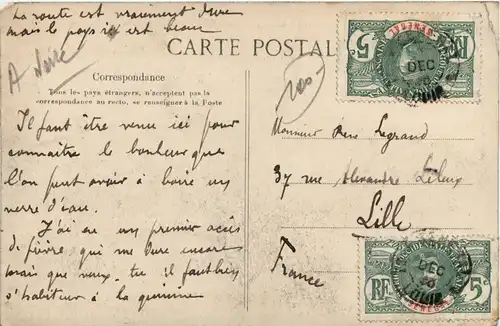 La route est vraiment dure
mais le pays ici est beau
CARTE POSTALE
A Terre
Correspondance
Tous les pays étrangers, n'acceptent pas la
correspondance au recto, se renseigner à la Poste
200-
Il faut être venu ici pour
connaître le bonheur que
l'on peut avoir à boire un
verre d'eau.
J'ai eu un premier accès
de fièvre qui me dure encore
mais que veux-tu il faut bien
s'habituer à la quinine
Monsieur René Legrand
37 rue Alexandre Leleux
Lille
France
RF
5
SENEGAL
DEC
RF
5c
SENEGAL
DEC